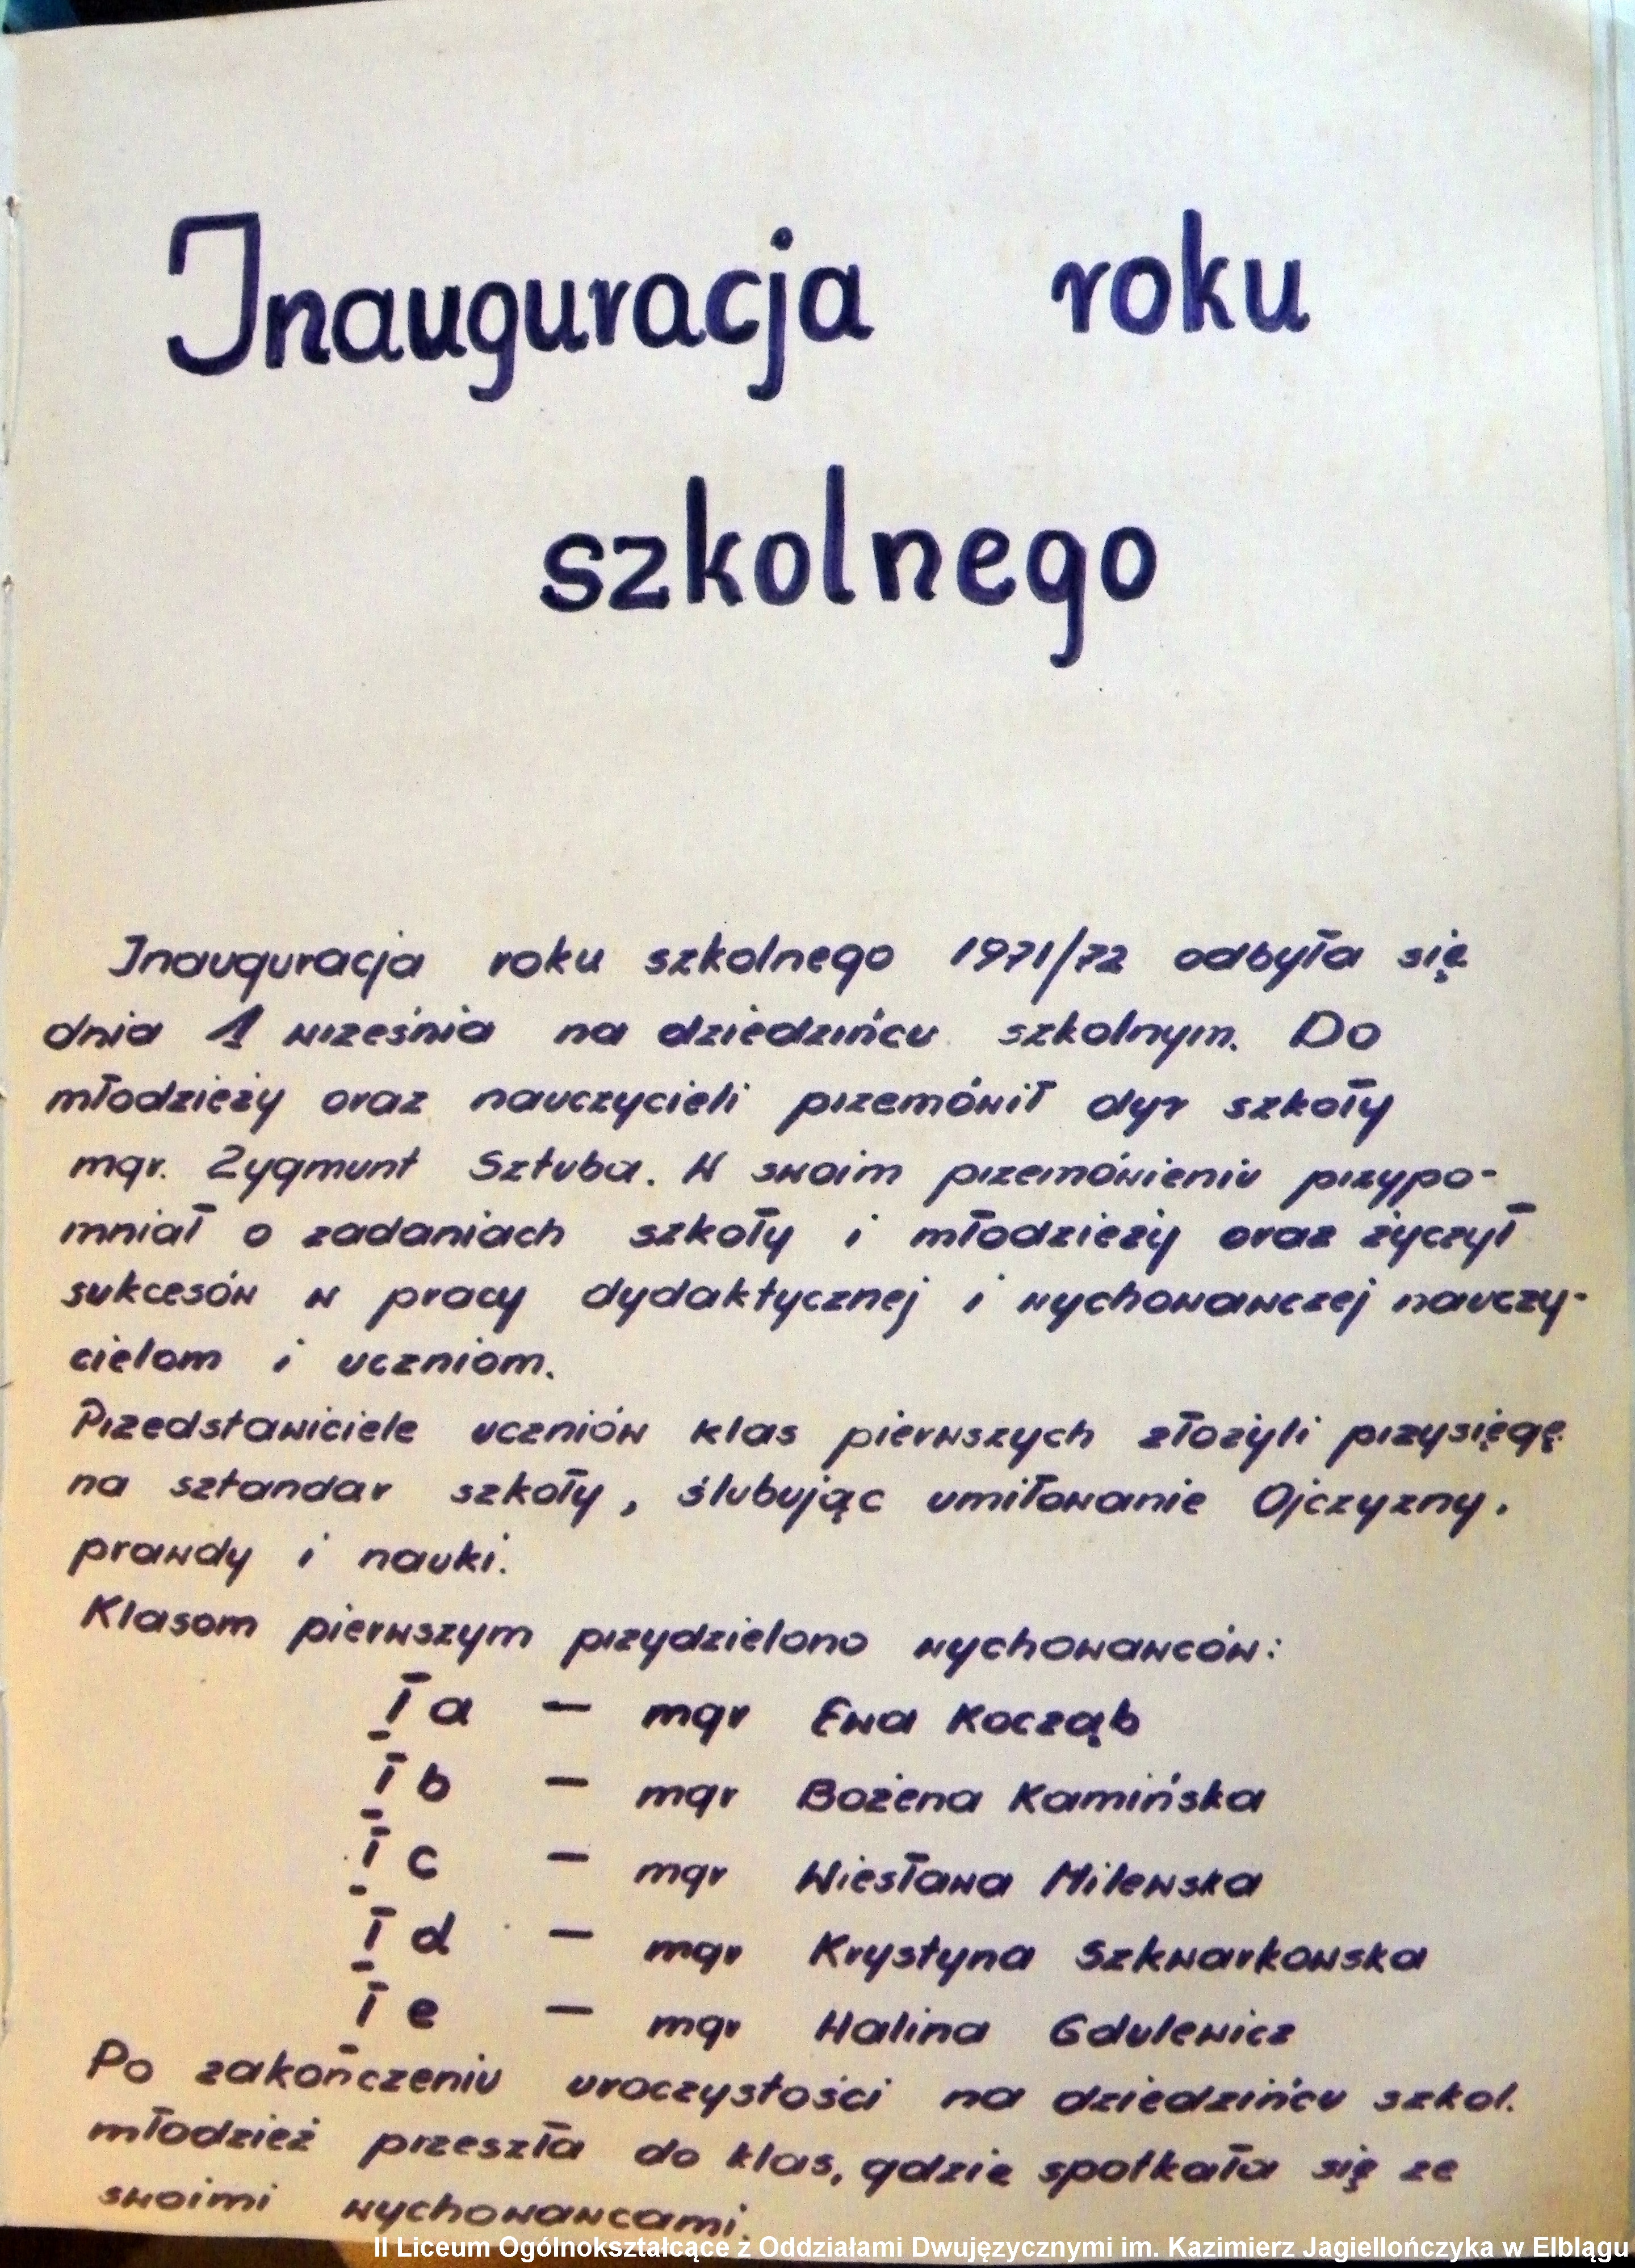 Inauguracja roku
szkolnego
Inauguracja roku szkolnego 1971/72 odbyła się
dnia 1 września na dziedzińcu szkolnym. Do
młodzieży oraz nauczycieli przemówił dyr szkoły
mgr. Zygmunt Sztuba. W swoim przemówieniu przypo-
mniał o zadaniach szkoły i młodzieży oraz życzył
sukcesów w pracy dydaktycznej i wychowawczej nauczy-
cielom i uczniom.
Przedstawiciele uczniów klas pierwszych złożyli przysięgę
na sztandar szkoły, ślubując umiłowanie Ojczyzny,
prawdy i nauki.
Klasom pierwszym przydzielono wychowawców:
I a — mgr Ewa Kocząb
I b — mgr Bożena Kamińska
I c — mgr Wiesława Milewska
I d — mgr Krystyna Szkwarkowska
I e — mgr Halina Gdulewicz
Po zakończeniu uroczystości na dziedzińcu szkol.
młodzież przeszła do klas, gdzie spotkała się ze
swoimi wychowawcami.
II Liceum Ogólnokształcące z Oddziałami Dwujęzycznymi im. Kazimierz Jagiellończyka w Elblągu